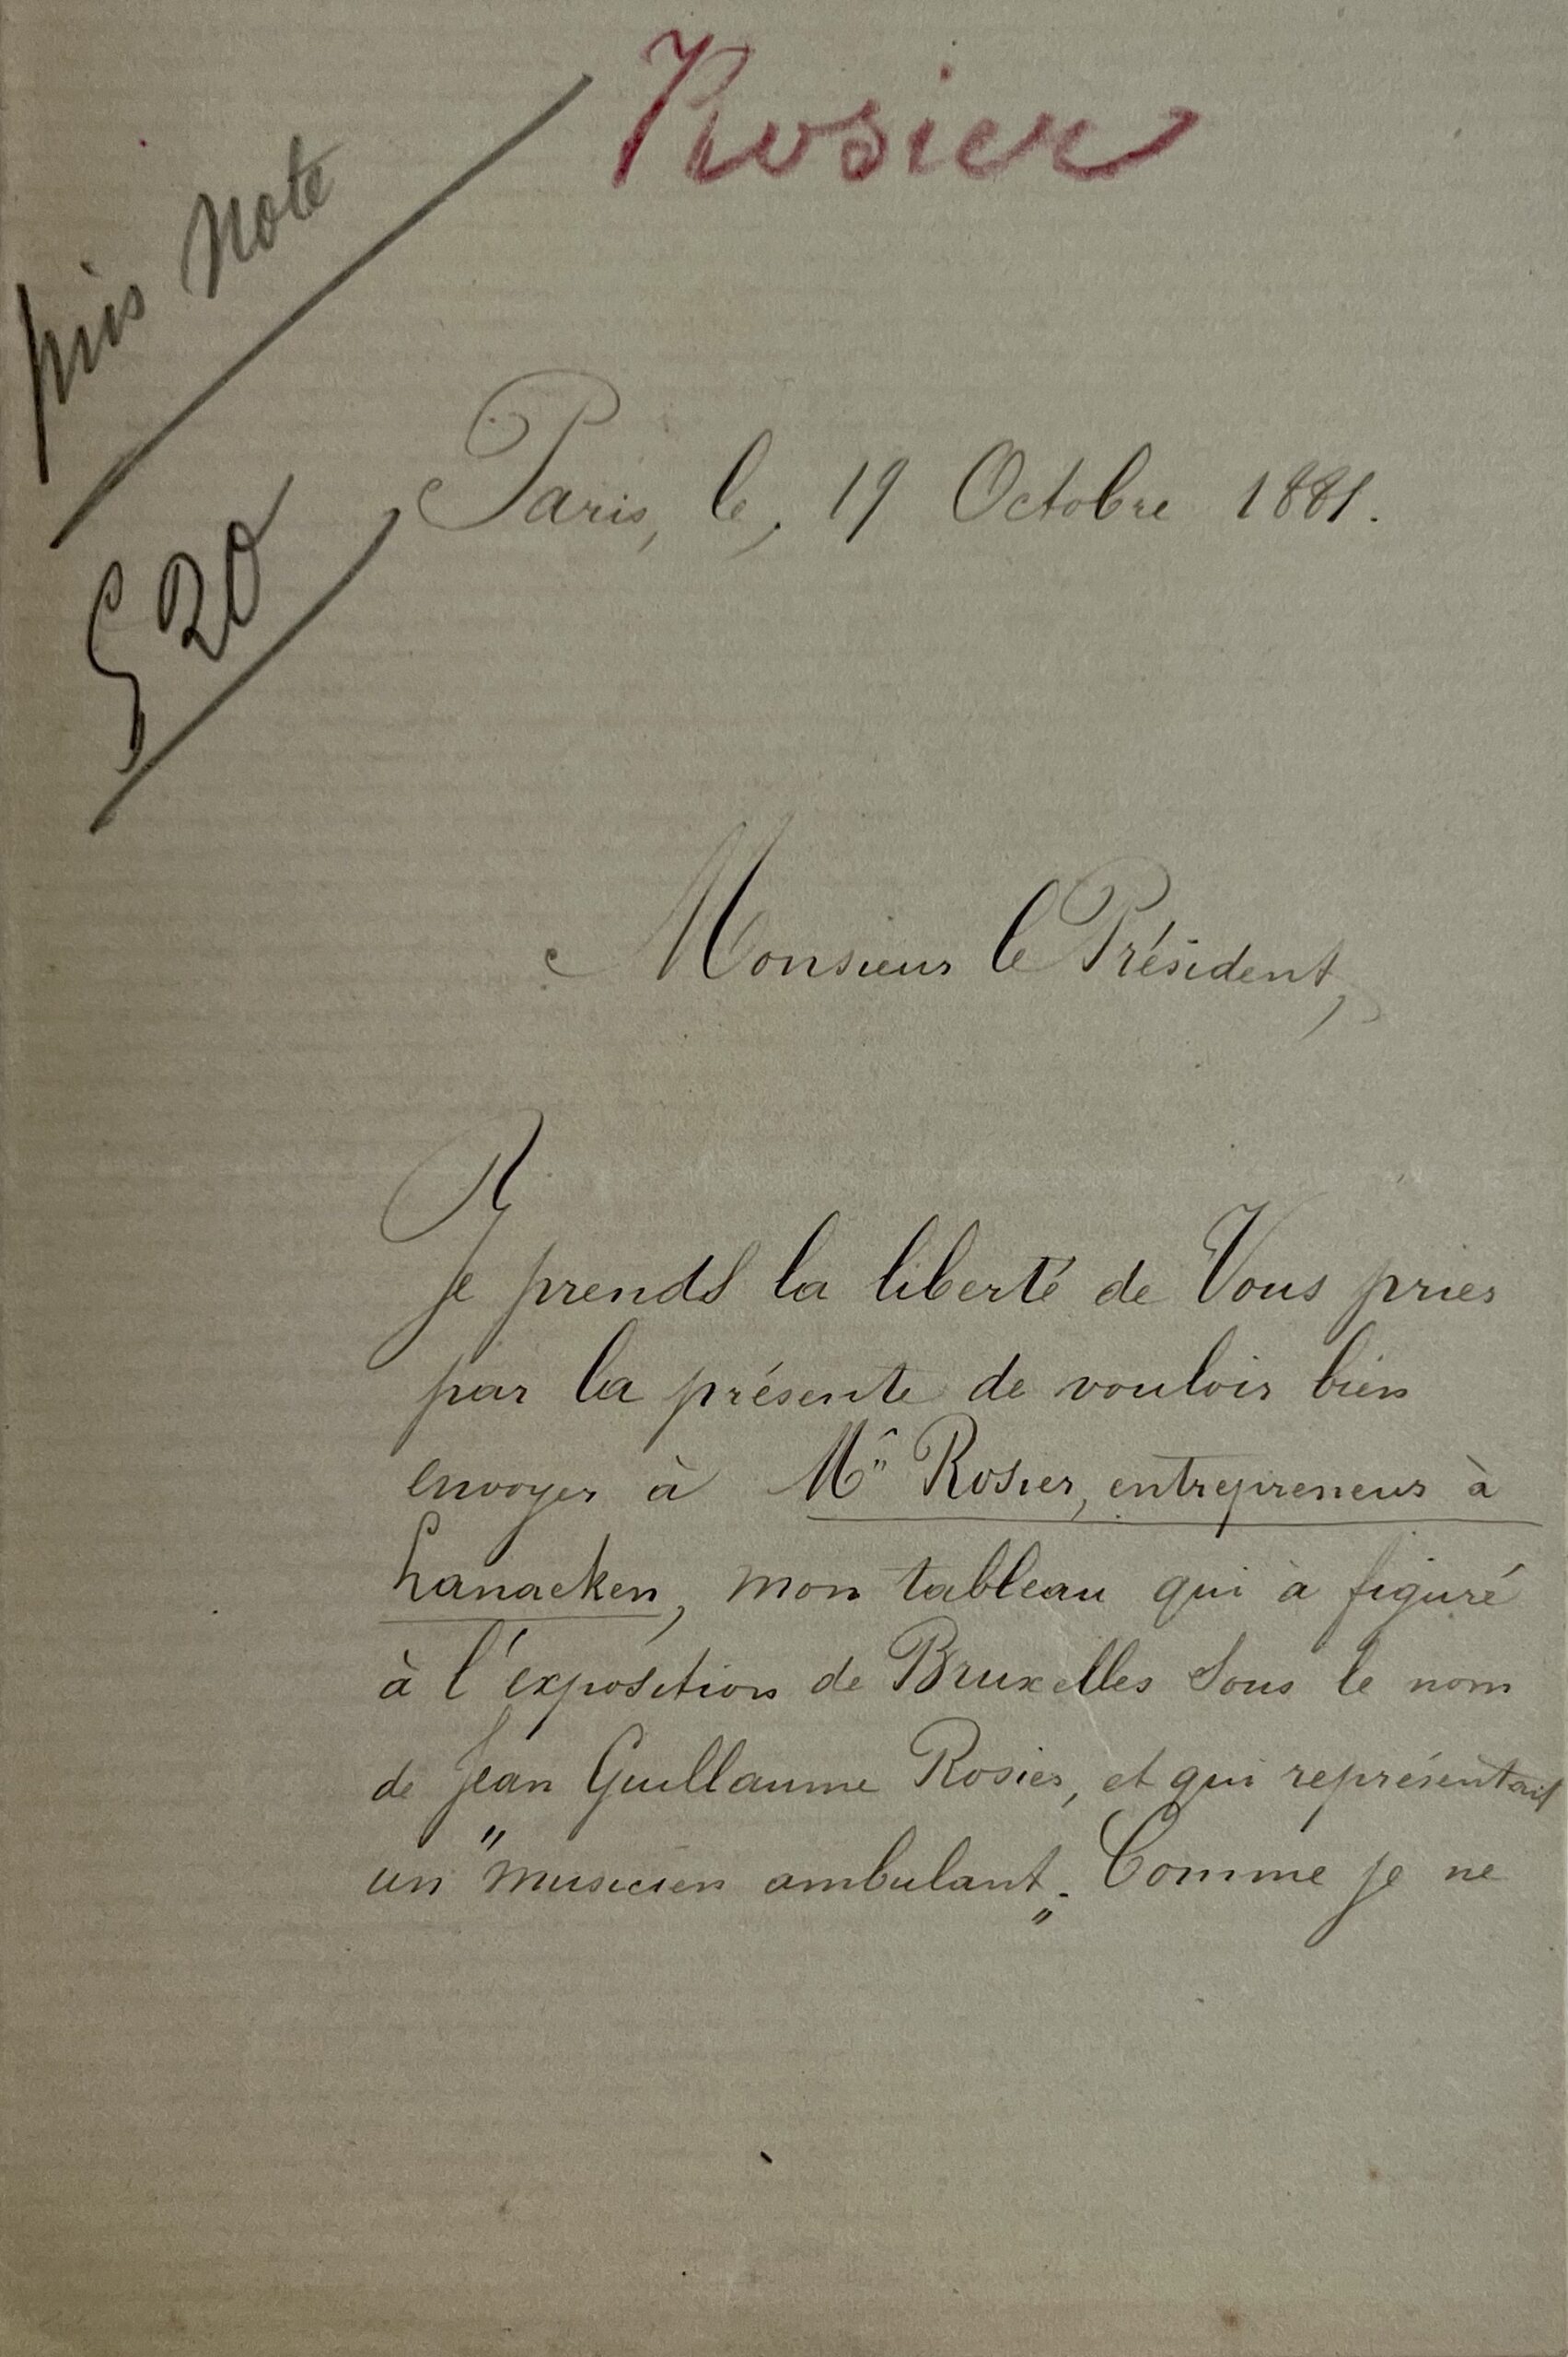 Rosier
pris Note
Paris, le, 19 Octobre 1881.
§ 20
Monsieur le Président,
Je prends la liberté de Vous prier
par la présente de vouloir bien
envoyer à Mr Rosier, entrepreneur à
Lanaeken, mon tableau qui à figuré
à l'exposition de Bruxelles sous le nom
de Jean Guillaume Rosier, et qui représentait
un "musicien ambulant„. Comme je ne